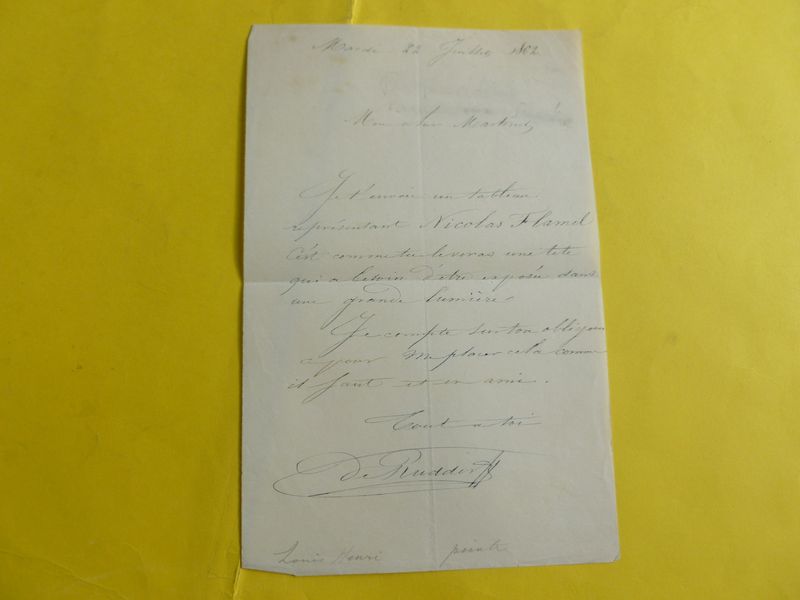 Mardi 22 Juillet 1862
Mon cher Martinet,
Je t'envoie un tableau
représentant Nicolas Flamel
C'est comme tu le verras une tete
qui a besoin d'être exposée dans
une grande lumière.
Je compte sur ton obligean
ce pour me placer cela comme
il faut et en ami.
Tout a toi
De Rudder
Louis Henri peintre